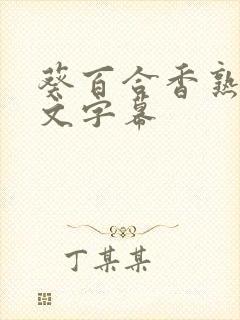 葵百合香熟
文字幕
丁某某